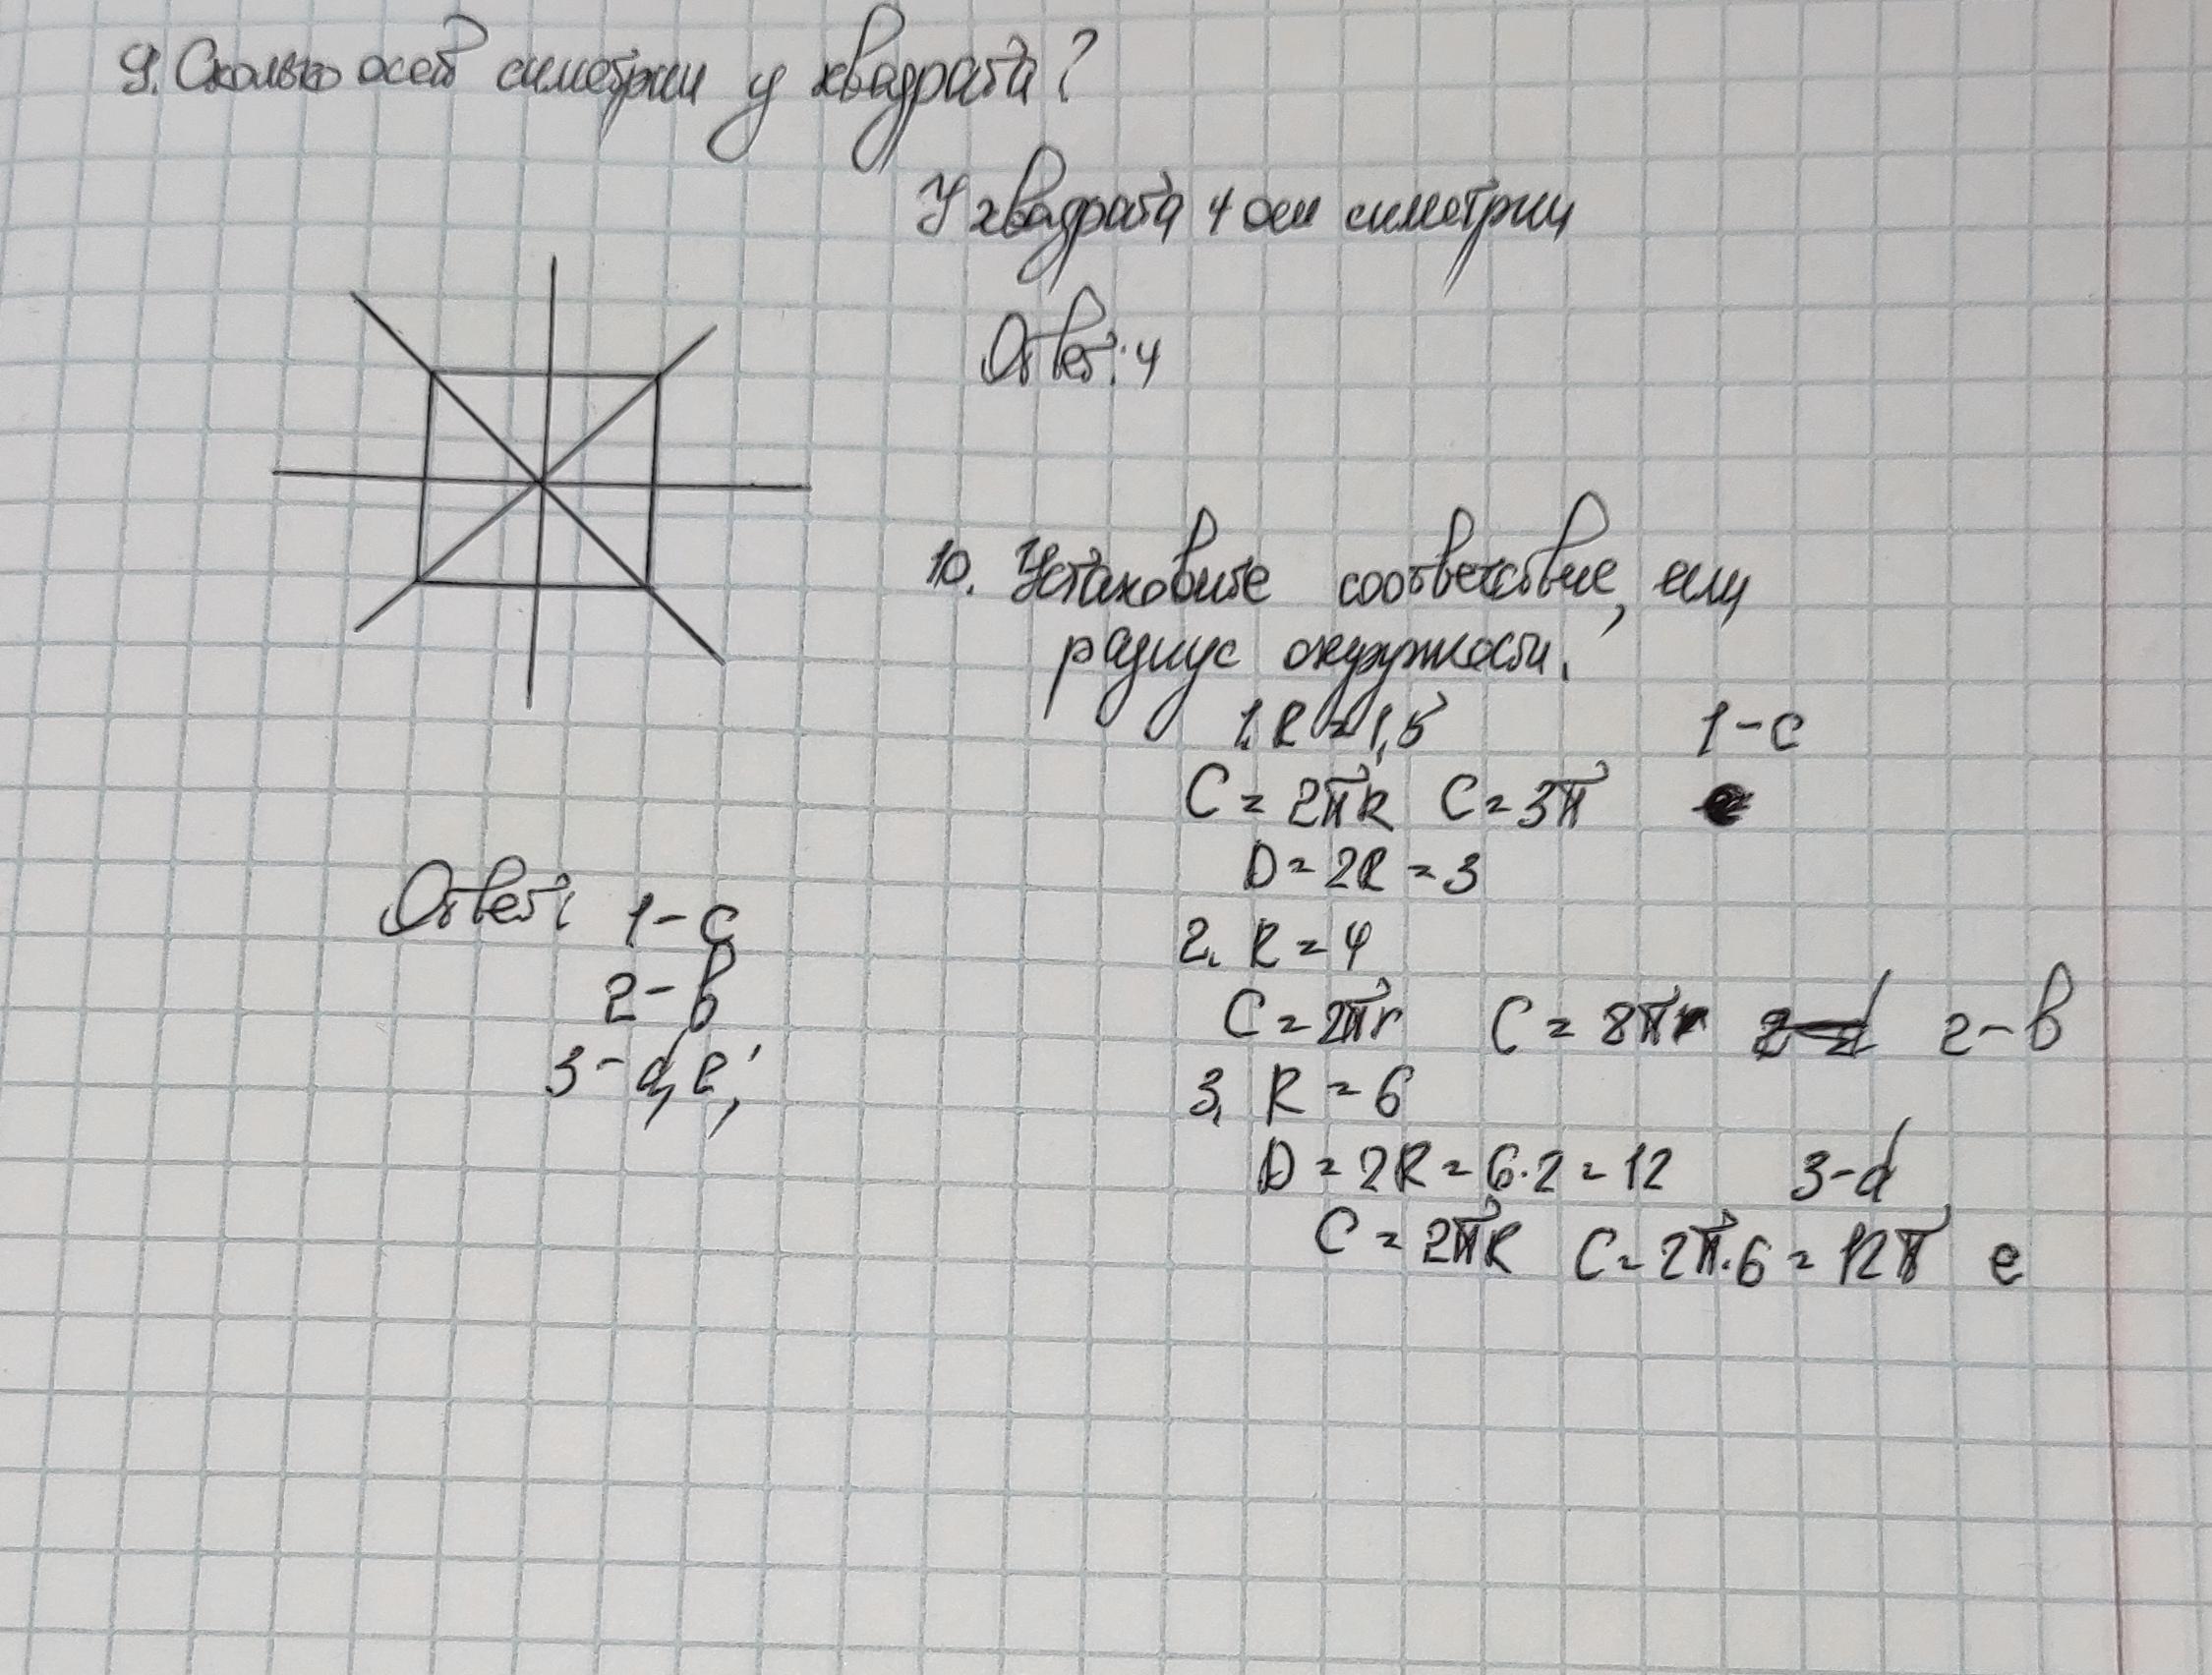 9. Сколько осей симетрии у квадрата?
У квадрата 4 оси симетрии
Ответ: 4
10. Установите соответствие, если
радиус окружности.
1. R = 1,5 1-c
C = 2πR C = 3π
D = 2R = 3
2. R = 4
C = 2πr C = 8π 2-b
3. R = 6
D = 2R = 6·2 = 12 3-d
C = 2πR C = 2π·6 = 12π e
Ответ: 1-c
2-b
3-d,e;